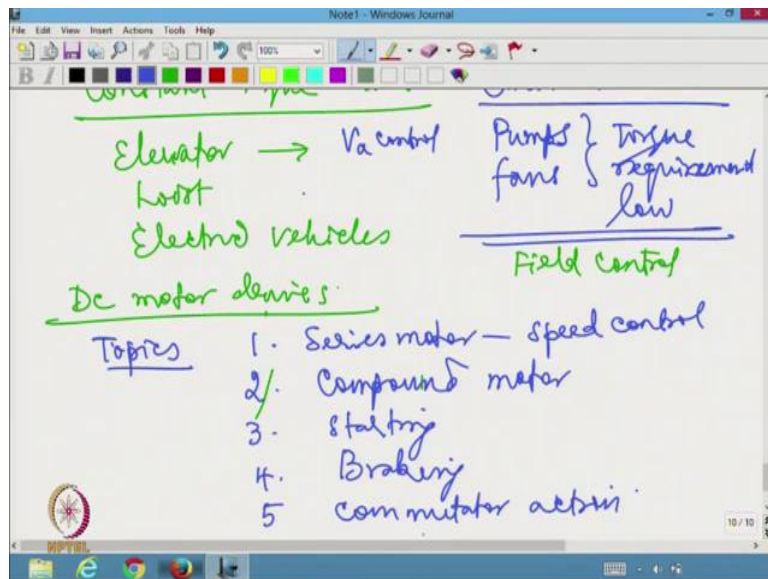 Note1 - Windows Journal
File Edit View Insert Actions Tools Help
100%
B I
Constant
Elevator → Va control
hoist
Electric vehicles
Pumps } Torque
fans } requirement
low
Field control
Dc motor derives
Topics 1. Series motor — speed control
2. Compound motor
3. Starting
4. Braking
5 commutator action
10 / 10
NPTEL